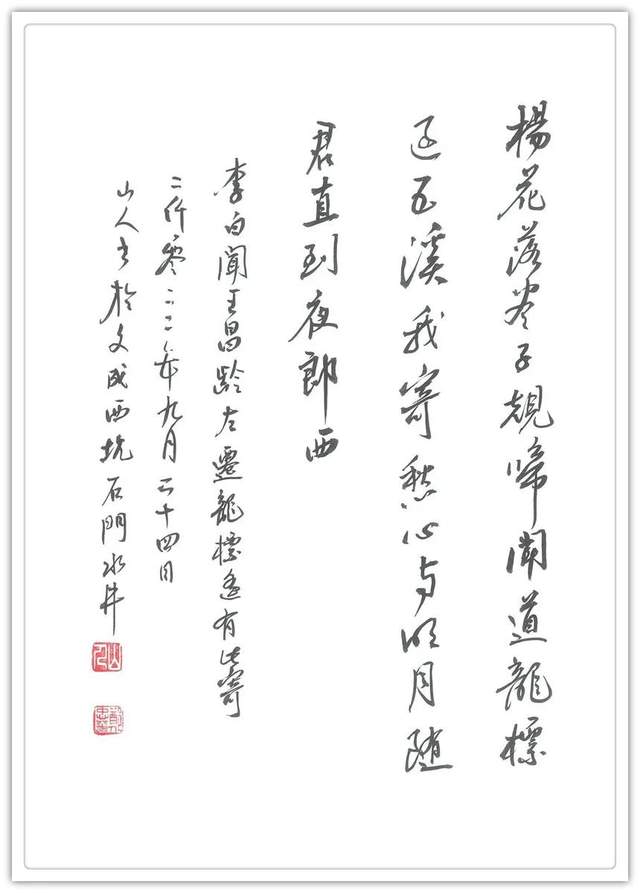 楊花落尽子規啼聞道龍標
过五溪我寄愁心与明月随
君直到夜郎西
李白聞王昌齡左遷龍標遙有此寄
二仟零二二年九月二十四日
山人书於文成西坑石門水井
山人